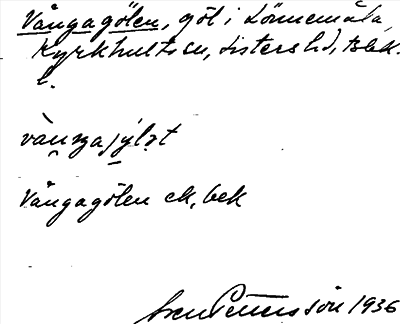 Vångagölen, göl i Lönnemåla,
Kyrkhults sn, Listers hd, Blek.
l.
Vångagölen ek, bek
Sven Petersson 1936